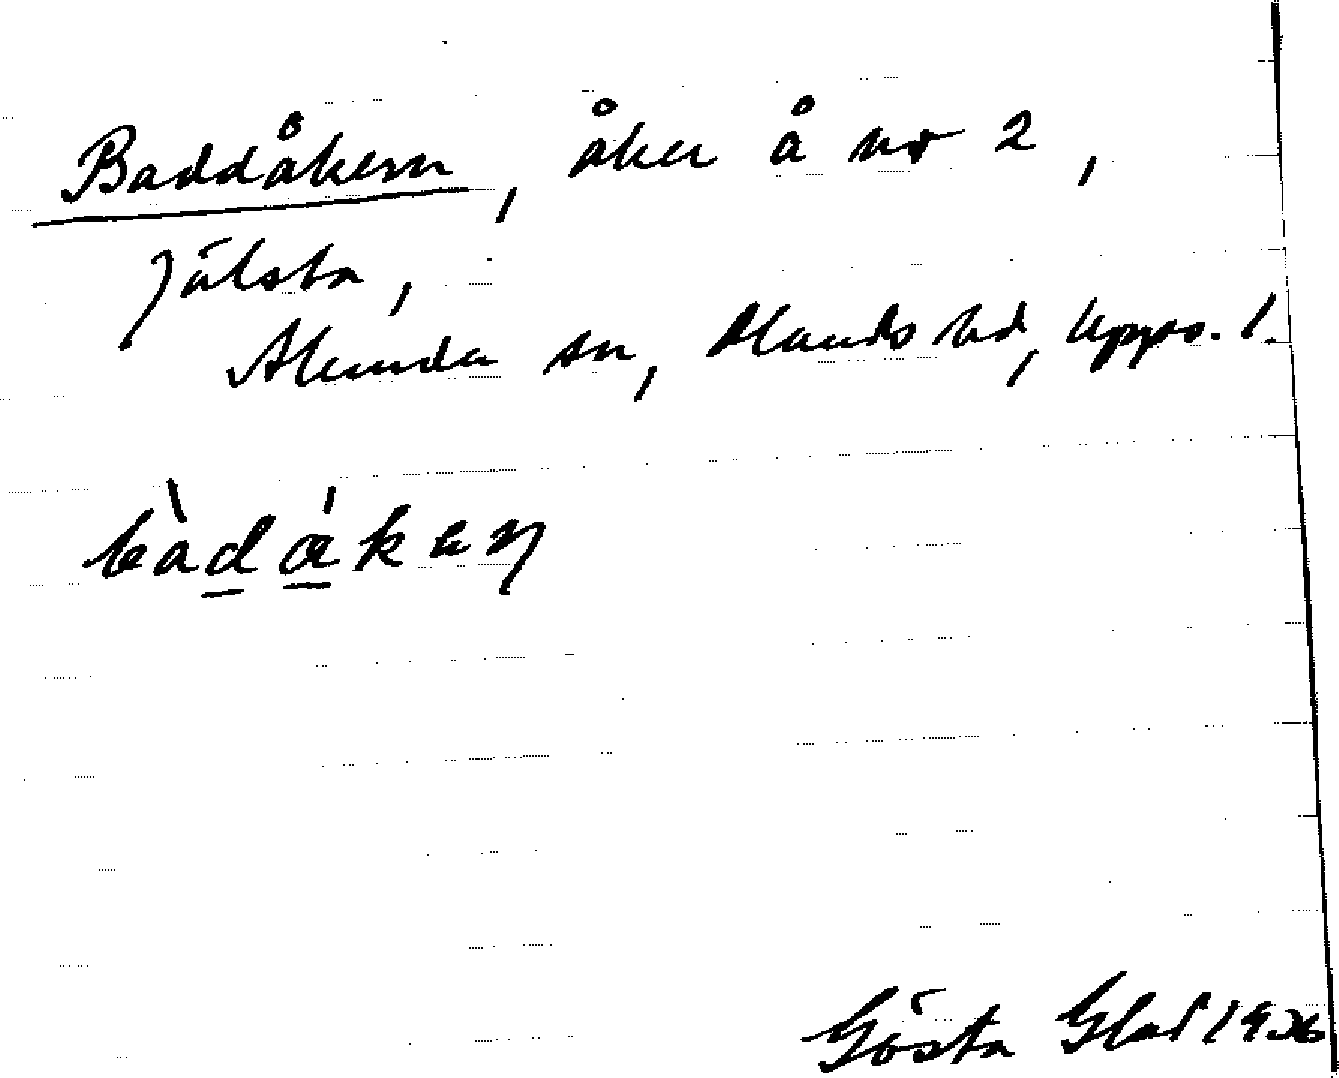 Baddåkern, åker å nr 2,
Jälsta,
Alunda sn, Olands hd, Upps. l.
bàdåkeɳ
Gösta Glad 1936